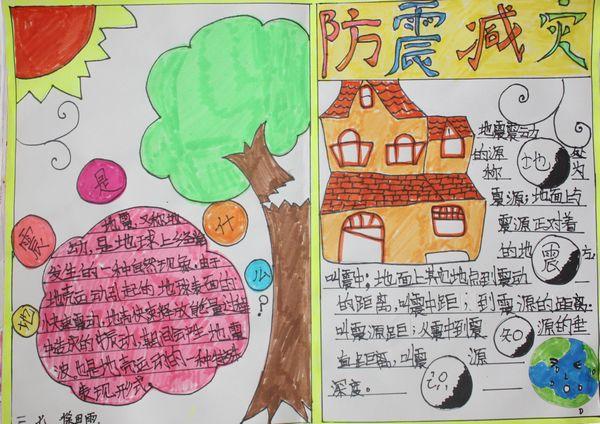 防震减灾
地震是什么?
地震又称地
动,是地球上经常
发生的一种自然现象。由于
地壳运动引起的地球表面的
快速震动,地壳快速释放能量过程
中造成的振动,期间产生地震
波,也是地壳运动的一种特殊
表现形式。
三、七
地震震动
的源 地 处
称 为
震源;地面上
震源正对着
的地 震 方,
叫震中;地面上其他地点到震动
的距离,叫震中距;到震源的距离
叫震源距;从震中到震 知 源的垂
直距离,叫 源
深度。 识